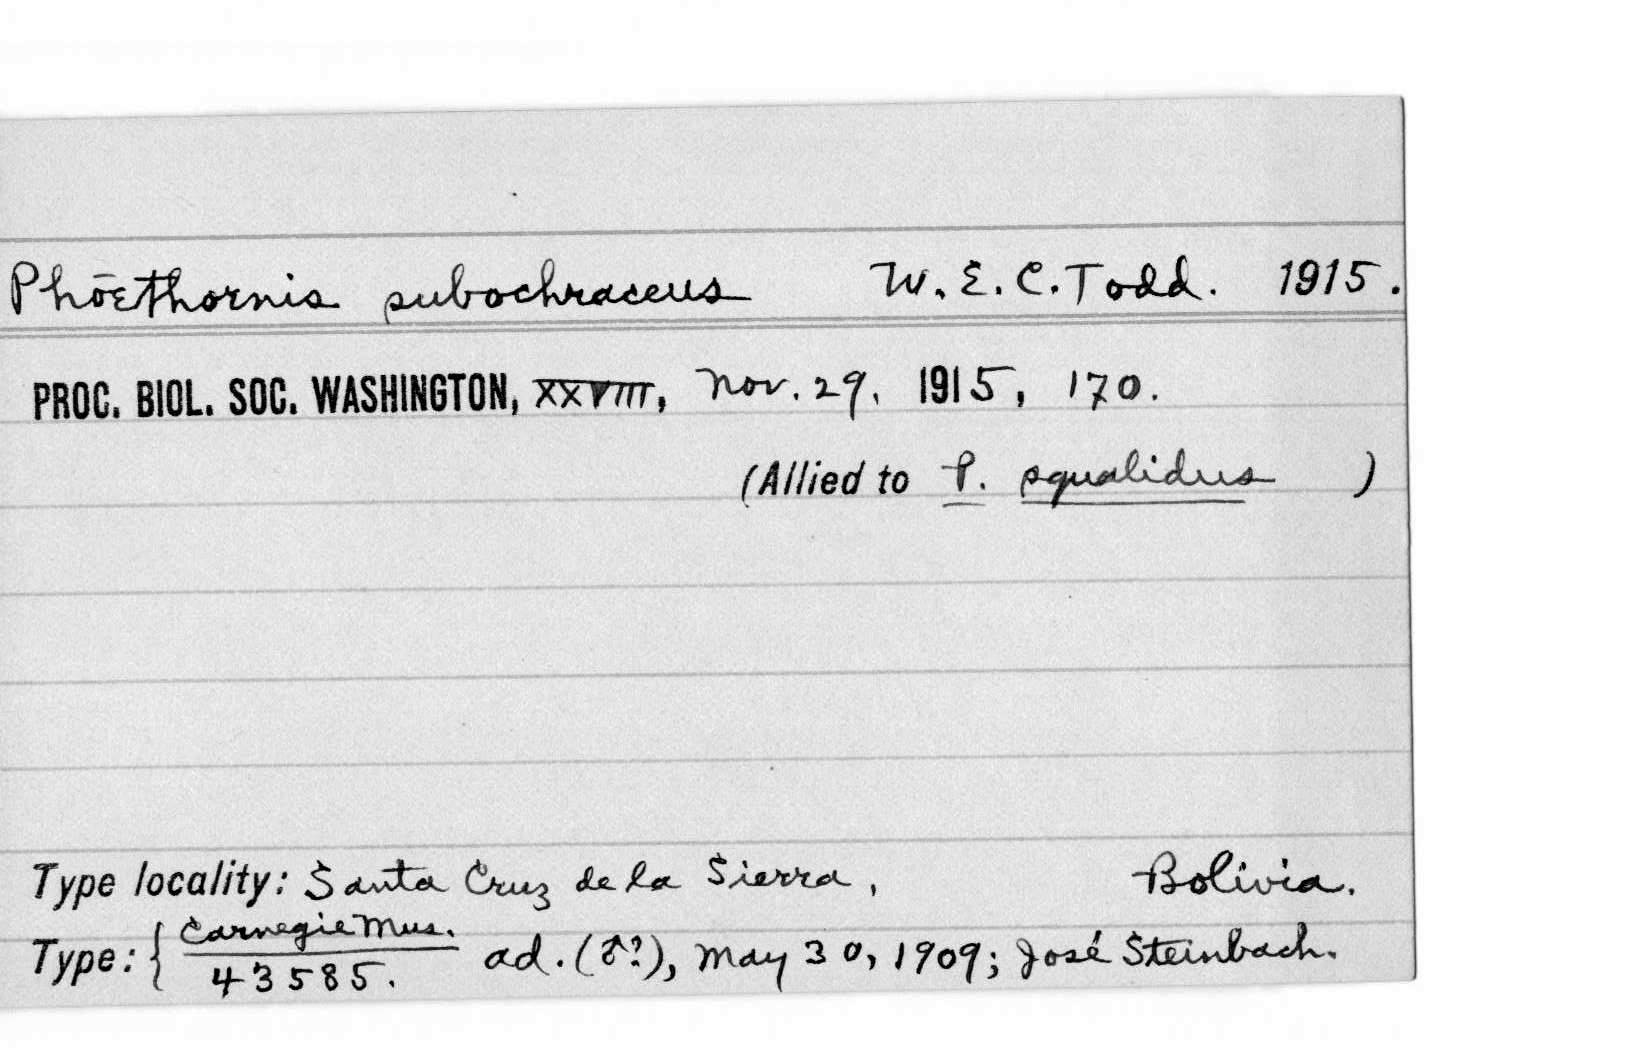 Phōethornis subochraceus W. E. C. Todd. 1915.
PROC. BIOL. SOC. WASHINGTON, XXVIII, Nov. 29, 1915, 170.
(Allied to P. squalidus )
Type locality: Santa Cruz de la Sierra, Bolivia.
Type: { Carnegie Mus.
43585. ad. (♂?), May 30, 1909; José Steinbach.